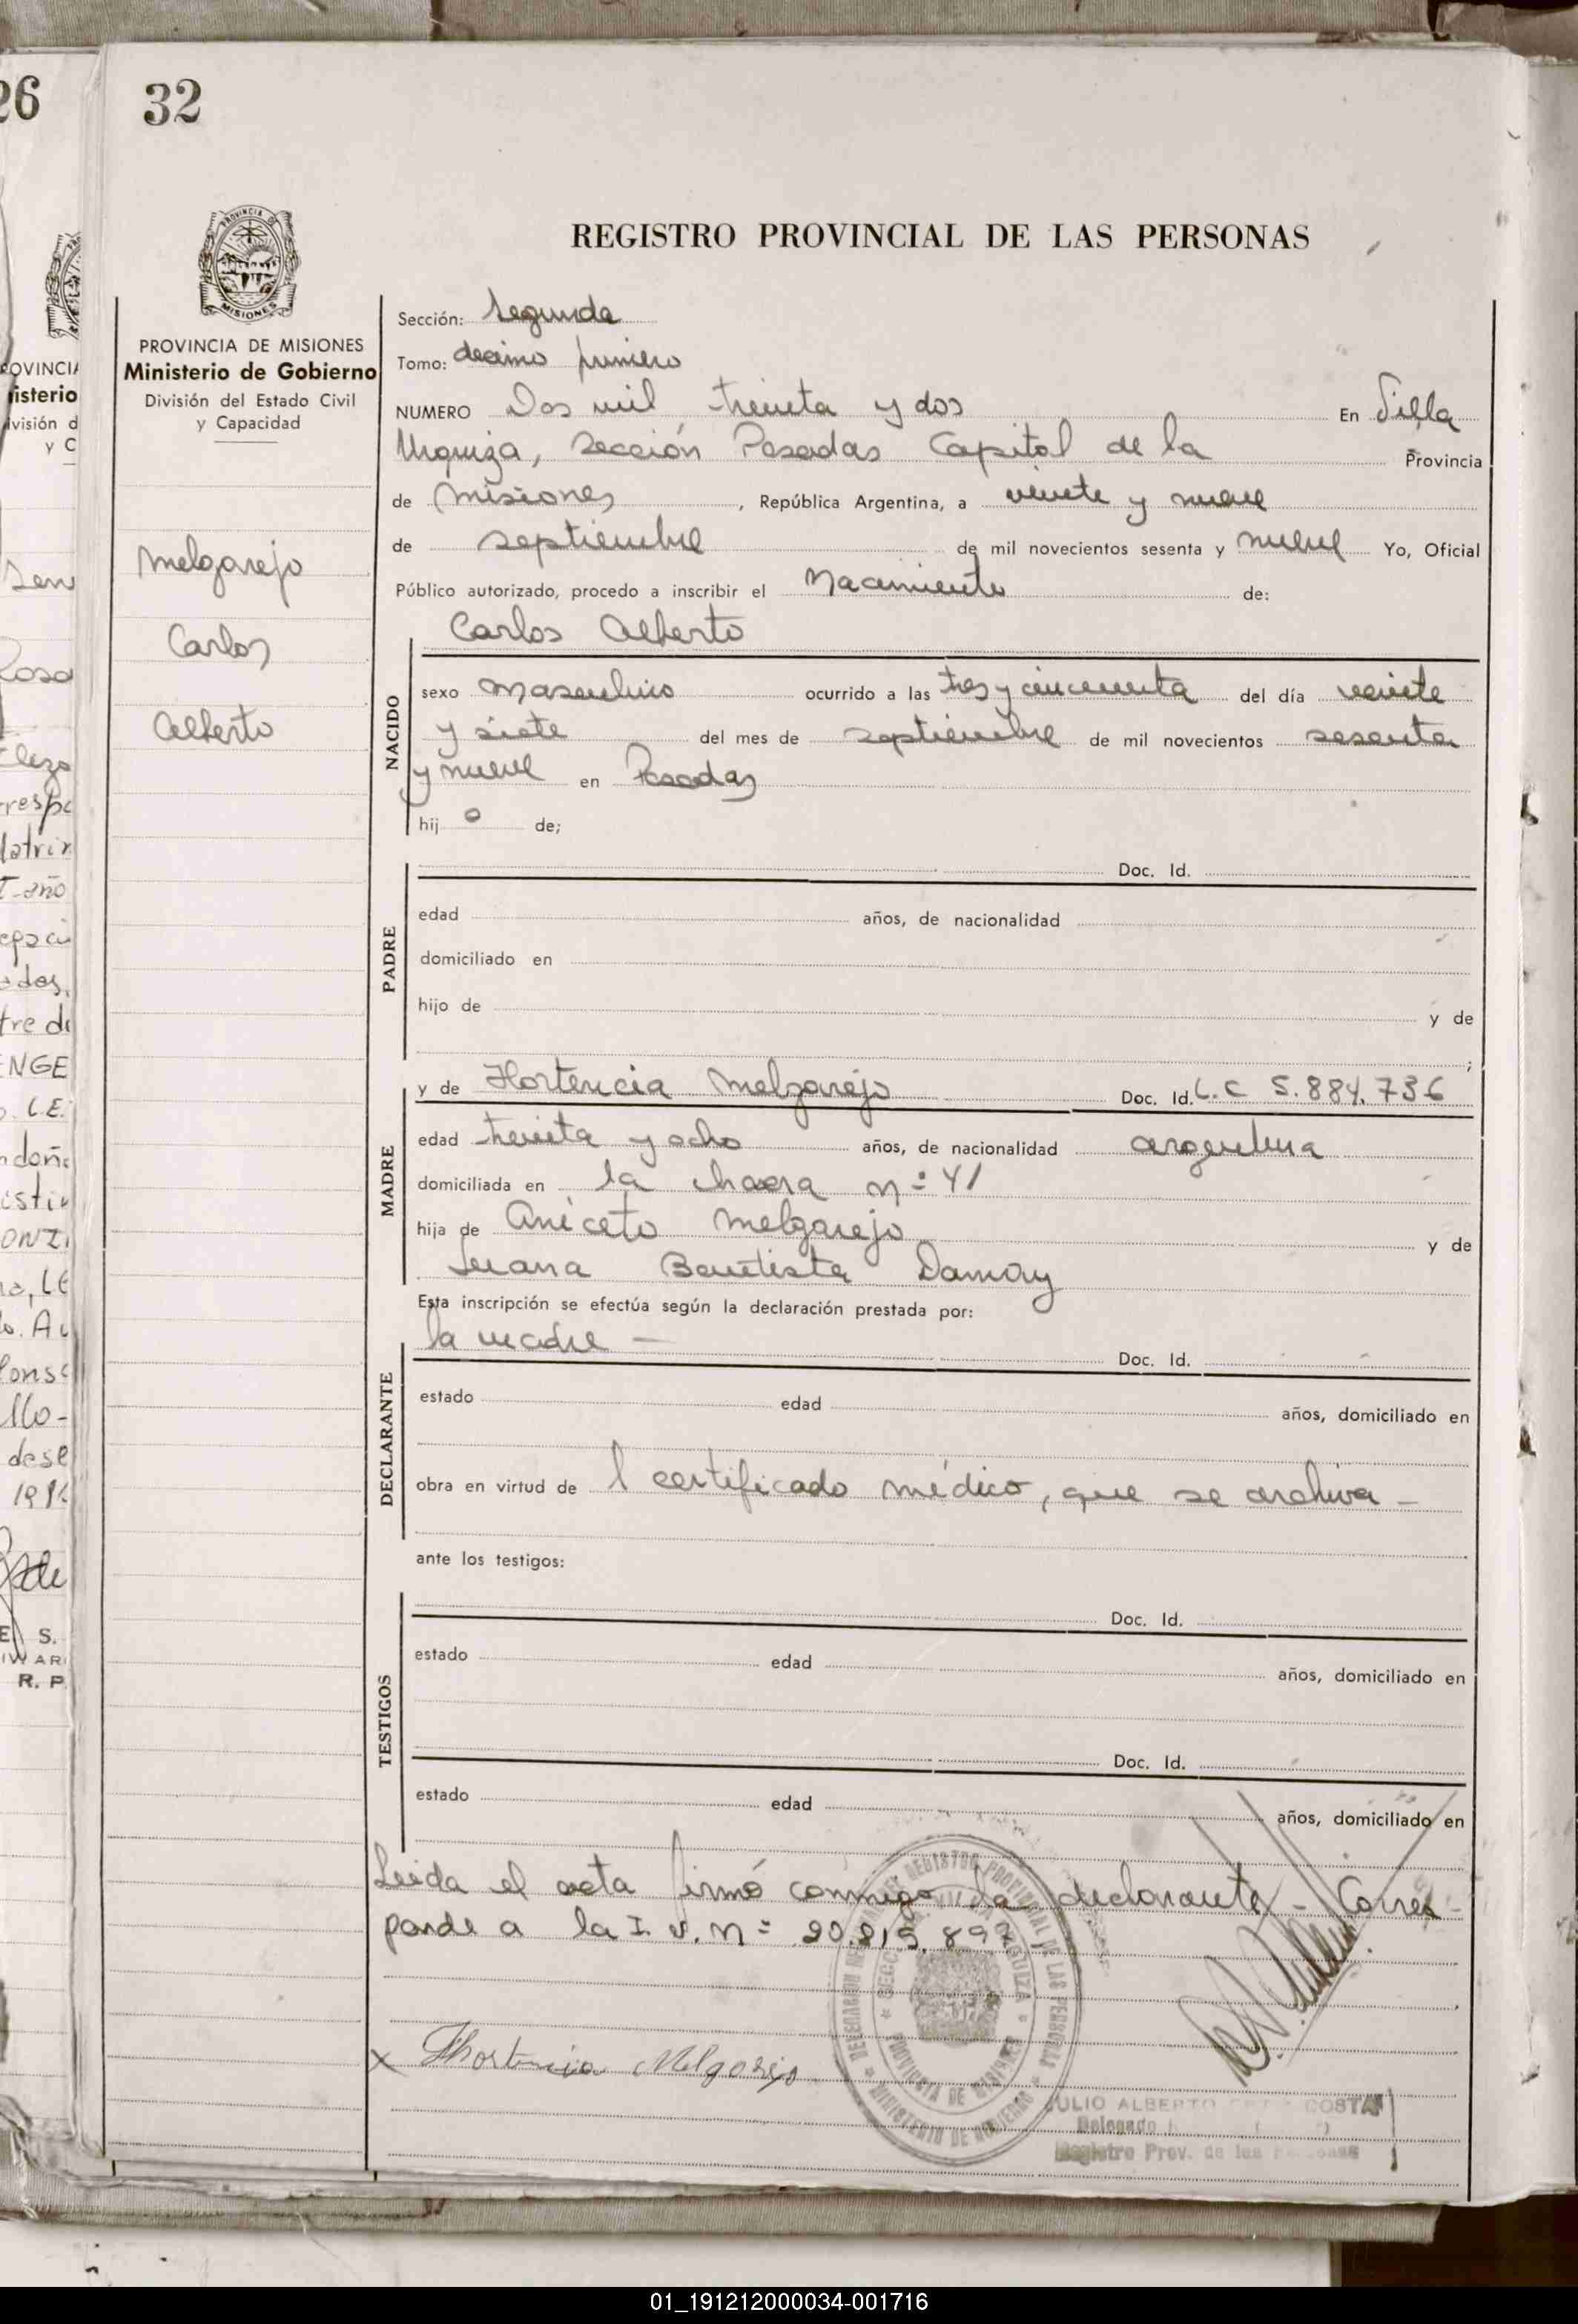 26
32
PROVINCIA DE MISIONES
Ministerio de Gobierno
División del Estado Civil
y Capacidad
Melgarejo
Carlos
Alberto
REGISTRO PROVINCIAL DE LAS PERSONAS
Sección: Segunda
Tomo: decimo primero
NUMERO Dos mil treinta y dos En Villa
Urquiza, Sección Posadas Capital de la Provincia
de Misiones, República Argentina, a veinte y nueve
de septiembre de mil novecientos sesenta y nueve Yo, Oficial
Público autorizado, procedo a inscribir el Nacimiento de:
Carlos Alberto
NACIDO
sexo masculino ocurrido a las tres y cincuenta del día veinte
y siete del mes de septiembre de mil novecientos sesenta
y nueve en Posadas
hij o de;
PADRE
Doc. Id.
edad años, de nacionalidad
domiciliado en
hijo de y de
;
MADRE
y de Hortencia Melgarejo Doc. Id. L.C 5.884.736
edad treinta y ocho años, de nacionalidad argentina
domiciliada en la chacra nº 41
hija de Aniceto Melgarejo y de
Juana Bautista Damoy
Esta inscripción se efectúa según la declaración prestada por:
la madre —
DECLARANTE
Doc. Id.
estado edad años, domiciliado en
obra en virtud de l certificado médico, que se archiva -
ante los testigos:
TESTIGOS
Doc. Id.
estado edad años, domiciliado en
Doc. Id.
estado edad años, domiciliado en
Leida el acta firmó conmigo la declarante - Corres-
ponde a la I.v. nº 20.815.897
x Hortencia Melgarejo
JULIO ALBERTO COSTA
Delegado
Registro Prov. de las Personas
01_191212000034-001716